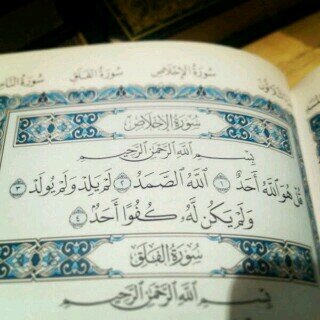 سُورَةُ الإِخْلَاصِ سُورَةُ الفَلَقِ سُورَةُ النَّاسِ
سُورَةُ الإِخْلَاصِ
بِسْمِ اللَّهِ الرَّحْمَٰنِ الرَّحِيمِ
قُلْ هُوَ اللَّهُ أَحَدٌ ١ اللَّهُ الصَّمَدُ ٢ لَمْ يَلِدْ وَلَمْ يُولَدْ ٣
وَلَمْ يَكُن لَّهُ كُفُوًا أَحَدٌ ٤
سُورَةُ الفَلَقِ
بِسْمِ اللَّهِ الرَّحْمَٰنِ الرَّحِيمِ